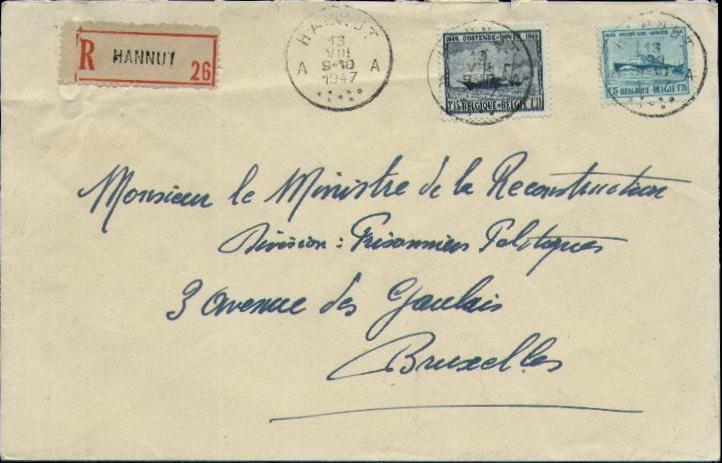 R HANNUT 26
HANNUT
13
VIII
9-10
A A
1947
1846 OOSTENDE-DOVER 1946
BELGIQUE-BELGIË
HANNUT
13
A
1846 OOSTENDE-DOVER 1946
1.35 BELGIQUE-BELGIË 1.35
Monsieur le Ministre de la Reconstruction
Division : Prisonniers Politiques
3 avenue des Gaulois
Bruxelles